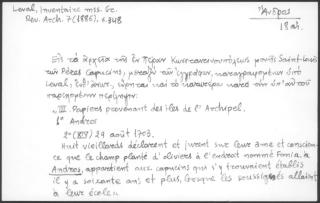 Laval, Inventaire mss. Gr.
Rev. Arch. 7 (1886), σ. 348
Ἄνδρος
18 αἰ.
Εἰς τὰ ἀρχεῖα τῆς ἐν Πέραν Κωνσταντινουπόλεως μονῆς Saint-Louis
τῶν Pères Capucins, μεταξὺ τῶν ἐγγράφων, καταγραφέντων ὑπὸ
Laval, ἔνθ' ἄνωτ., εὕρηται καὶ τὸ κατωτέρω κατὰ τὴν ὑπ' αὐτοῦ
παρεχομένην περίληψιν:
„III. Papiers provenant des îles de l'Archipel.
b° Andros
2° (XIV) 29 août 1703.
Huit vieillards déclarent et jurent sur leur âme et conscien-
ce que le champ planté d'oliviers à l'endroit nommé Fonia, à
Andros, appartient aux capucins qui s'y trouvaient établis
il y a soixante ans, et plus, lorsque les soussignés allaient
à leur école„